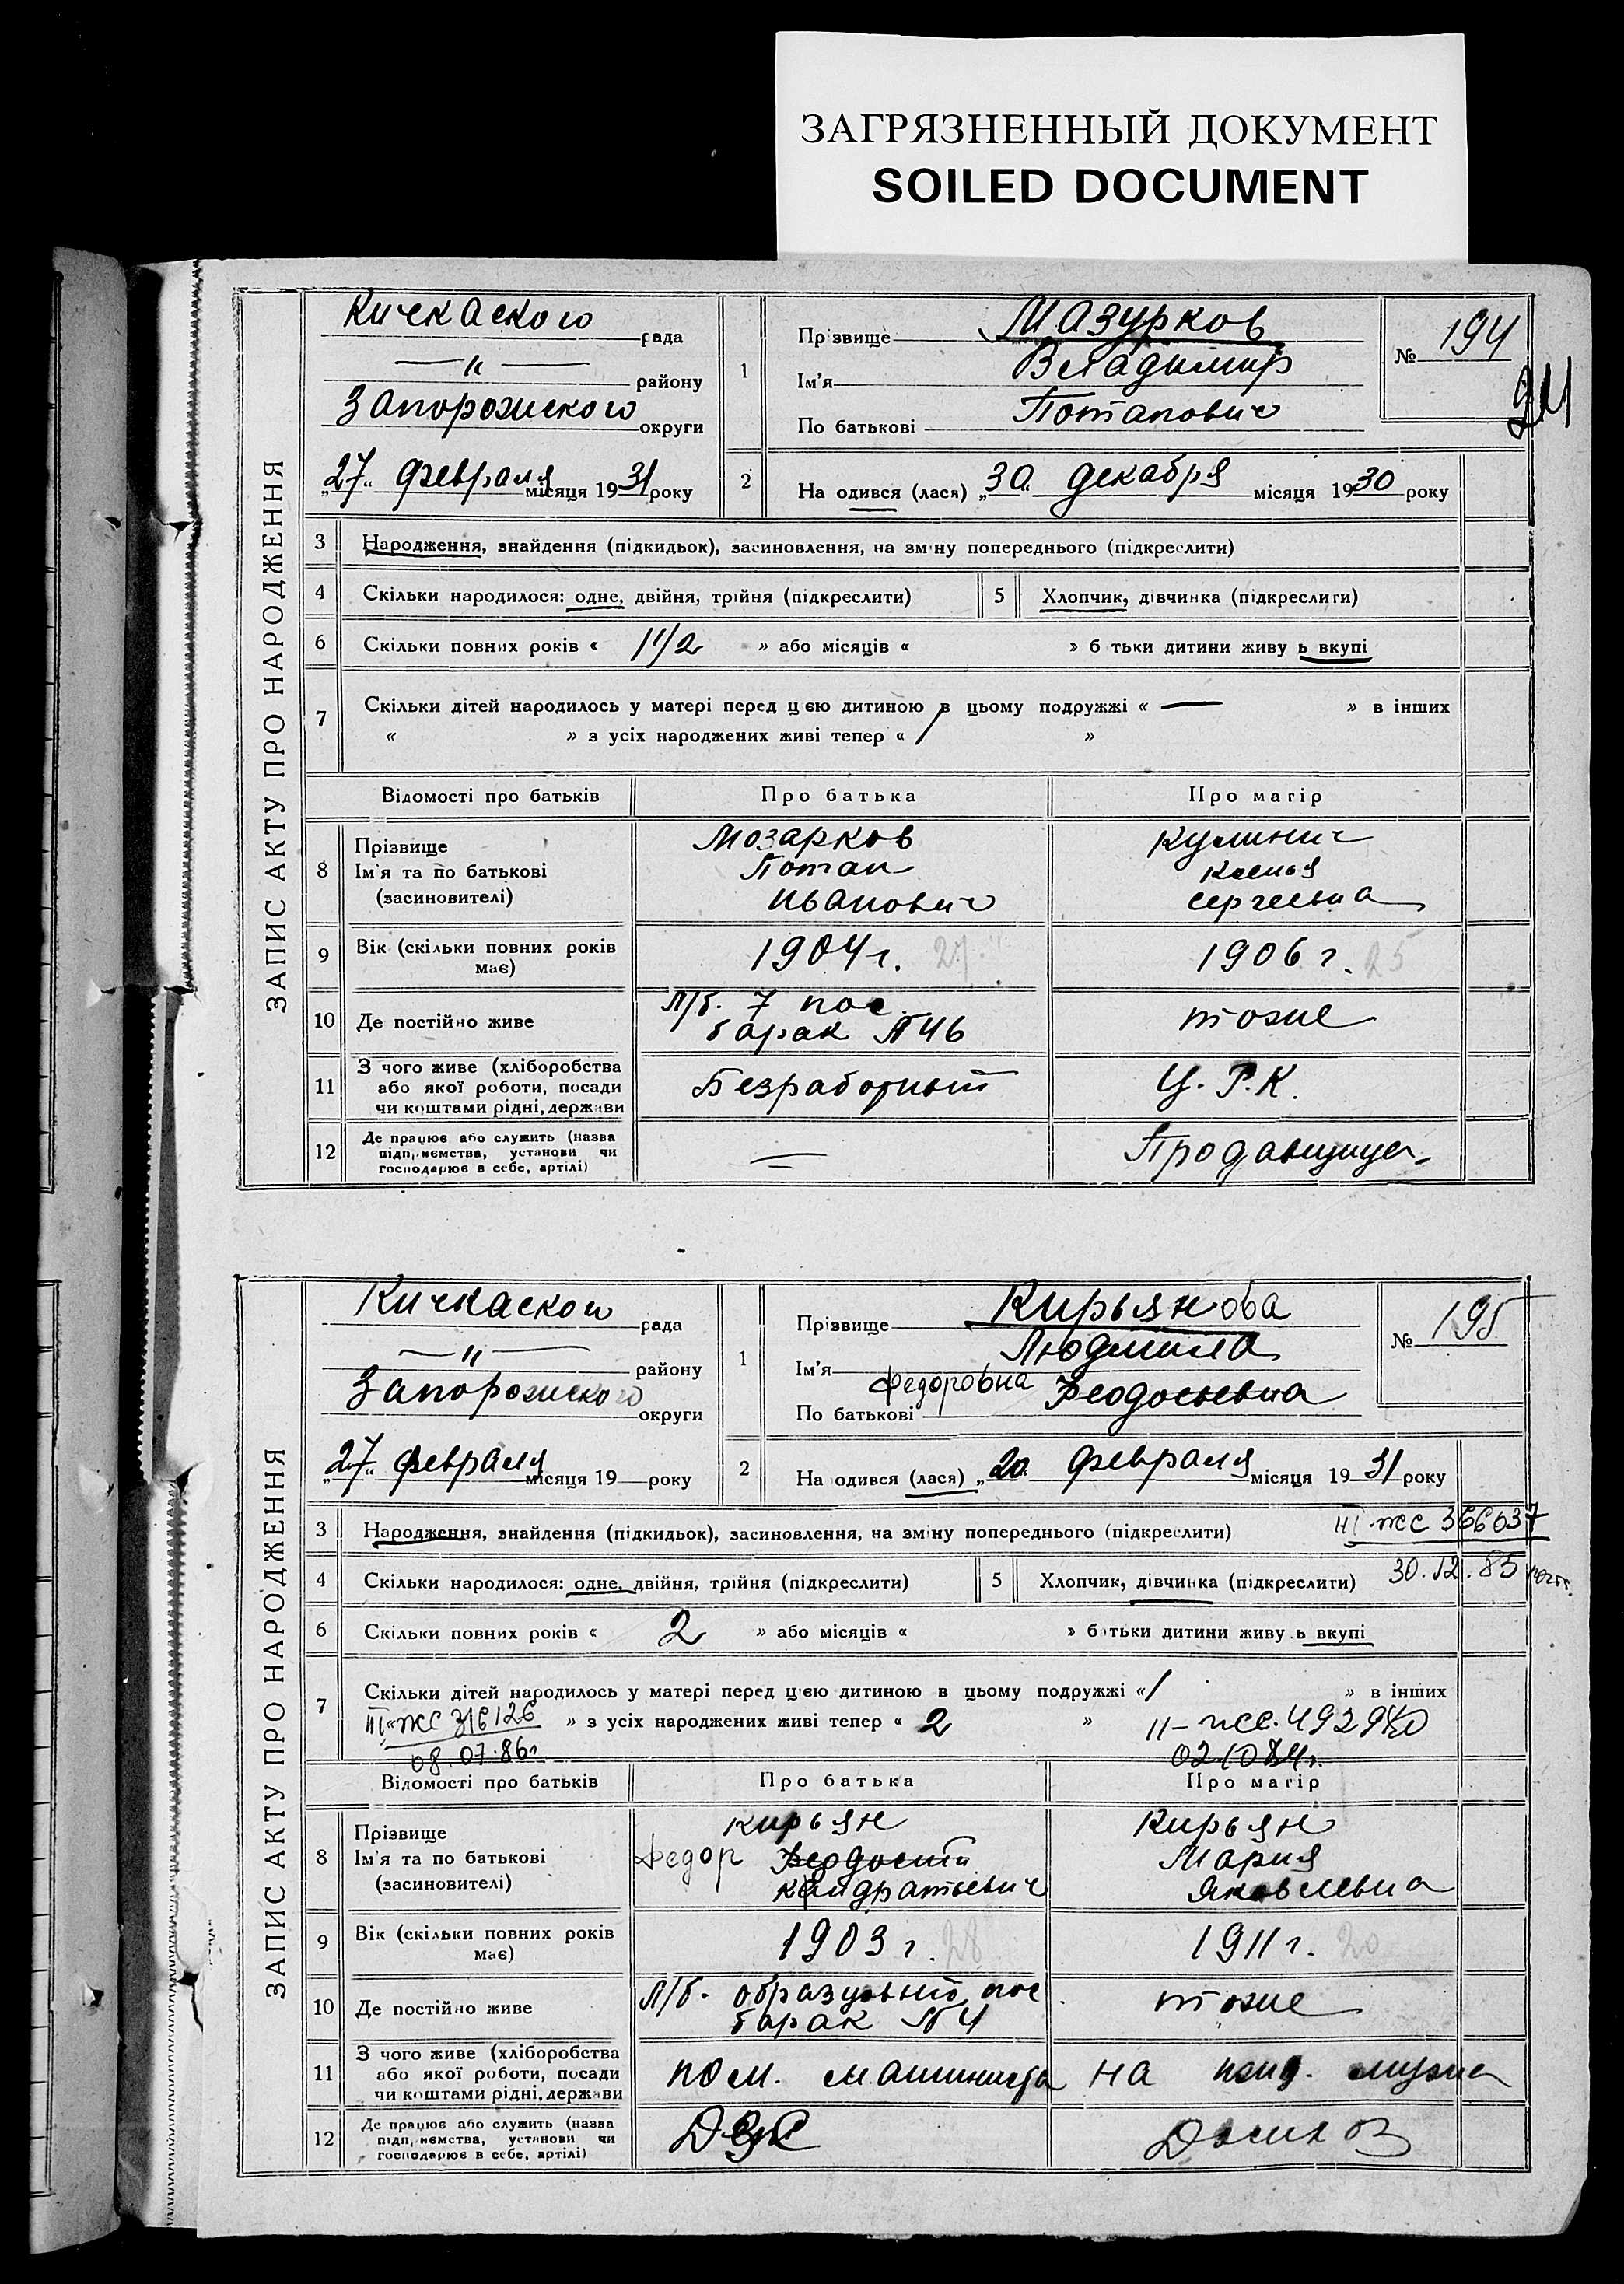 ЗАГРЯЗНЕННЫЙ ДОКУМЕНТ
SOILED DOCUMENT
ЗАПИС АКТУ ПРО НАРОДЖЕННЯ
Кичкаского рада
—„— району
Запорожского округи
„27“ февраля місяця 1931 року
1
Прізвище Мазурков
Ім'я Владимир
По батькові Потапович
№ 194
2
На одився (лася) „30“ декабря місяця 1930 року
3 Народження, знайдення (підкидьок), засиновлення, на зміну попереднього (підкреслити)
4 Скільки народилося: одне, двійня, трійня (підкреслити) 5 Хлопчик, дівчинка (підкреслити)
6 Скільки повних років « 1 1/2 » або місяців « » б тьки дитини живу ь вкупі
7 Скільки дітей народилось у матері перед цією дитиною в цьому подружжі « — » в інших
« » з усіх народжених живі тепер « / »
Відомості про батьків Про батька Про матір
8 Прізвище Ім'я та по батькові (засиновителі)
Мозарков
Потап
Иванович
Кулинич
Ксенья
Сергеевна
9 Вік (скільки повних років має) 1904 г. 27 1906 г. 25
10 Де постійно живе Л/б. 7 пос барак №46 тоже
11 З чого живе (хліборобства або якої роботи, посади чи коштами рідні, держави Безработный Ц. Р. К.
12 Де працює або служить (назва підприємства, установи чи господарює в себе, артілі) — Продавщица
ЗАПИС АКТУ ПРО НАРОДЖЕННЯ
Кичкаского рада
—„— району
Запорожского округи
„27“ февраля місяця 19 — року
1
Прізвище Кирьянова
Ім'я Людмила
По батькові Федоровна Феодосьевна
№ 195
2
На одився (лася) „20 февраля місяця 1931 року
3 Народження, знайдення (підкидьок), засиновлення, на зміну попереднього (підкреслити)
III-ЖС 366637
4 Скільки народилося: одне, двійня, трійня (підкреслити) 5 Хлопчик, дівчинка (підкреслити)
30.12.85
6 Скільки повних років « 2 » або місяців « » батьки дитини живу ь вкупі
7 Скільки дітей народилось у матері перед цією дитиною в цьому подружжі « 1 » в інших
III-ЖС 316126 » з усіх народжених живі тепер « 2 » II-ЖС.492940
08.07.86г 02.10 84г.
Відомості про батьків Про батька Про матір
8 Прізвище Ім'я та по батькові (засиновителі)
Кирьян
Федор Феодосий
Кандратьевич
Кирьян
Мария
Яковлевна
9 Вік (скільки повних років має) 1903 г. 28 1911 г. 20
10 Де постійно живе Л/б. образцовый пос барак №4 тоже
11 З чого живе (хліборобства або якої роботи, посади чи коштами рідні, держави пом. машиниста на ижд. мужа
12 Де працює або служить (назва підприємства, установи чи господарює в себе, артілі)